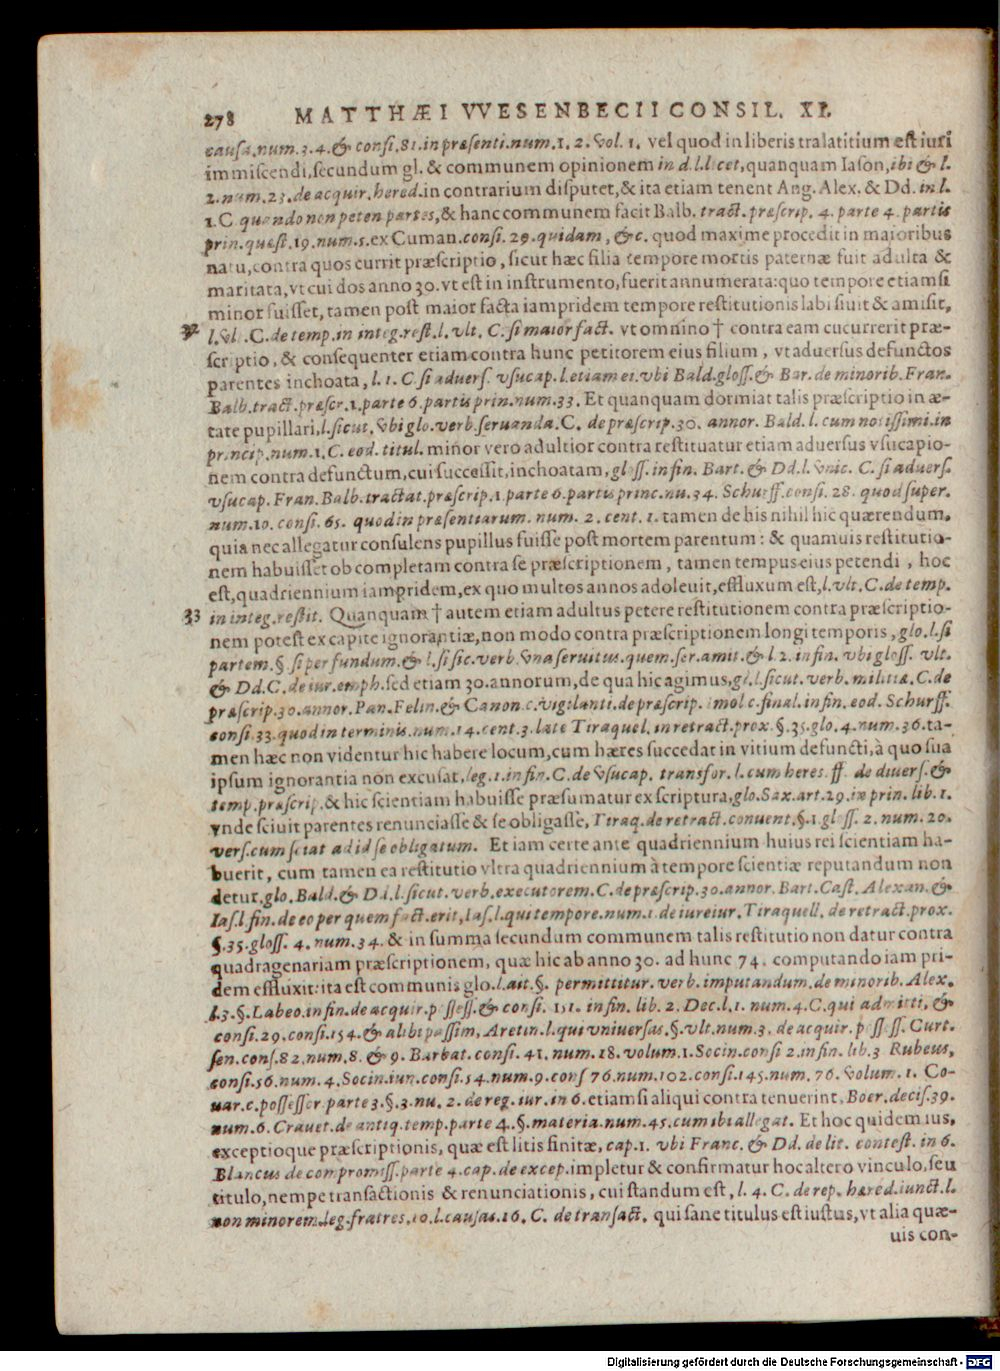 278 MATTHÆI VVESENBECII CONSIL. XI.
causa.num.3.4.& consi.81.in præsenti.num.1.2.vol.1. vel quod in liberis tralatitium est iuri
immiscendi, secundum gl.& communem opinionem in d.l.licet, quanquam Iason, ibi & l.
2.num.23.de acquir.hered.in contrarium disputet, & ita etiam tenent Ang. Alex. & Dd. in l.
1.C. quando non peten partes, & hanc communem facit Balb. tract. præscrip. 4. parte 4. partis
prin.quæst.19.num.5.ex Cuman.consi.29.quidam, &c. quod maxime procedit in maioribus
natu, contra quos currit præscriptio, sicut hæc filia tempore mortis paternæ fuit adulta &
maritata, vt cui dos anno 30. vt est in instrumento, fuerit annumerata: quo tempore etiamsi
minor fuisset, tamen post maior facta iampridem tempore restitutionis labi siuit & amisit,
32 l.vl.C.de temp.in integ.rest.l.vlt. C. si maior fact. vt omnino † contra eam cucurrerit præ-
scriptio, & consequenter etiam contra hunc petitorem eius filium, vt aduersus defunctos
parentes inchoata, l.1.C.si aduers. vsucap.l.etiam ei.vbi Bald.gloss.& Bar. de minorib.Fran.
Balb.tract.præscr.1.parte 6.partis prin.num.33. Et quanquam dormiat talis præscriptio in æ-
tate pupillari, l.sicut.vbi glo.verb.seruanda.C. de præscrip.30. annor. Bald.l. cum notissimi.in
princip.num.1.C.eod.titul. minor vero adultior contra restituatur etiam aduersus vsucapio-
nem contra defunctum, cui successit, inchoatam, gloss.in fin. Bart. & Dd.l.vnic. C. si aduers.
vsucap. Fran. Balb.tractat.præscrip.1.parte 6.partis princ.nu.34. Schurff.consi. 28. quod super.
num.10. consi. 65. quod in præsentiarum. num. 2. cent. 1. tamen de his nihil hic quærendum,
quia nec allegatur consulens pupillus fuisse post mortem parentum: & quamuis restitutio-
nem habuisset ob completam contra se præscriptionem, tamen tempus eius petendi, hoc
est, quadriennium iampridem, ex quo multos annos adoleuit, effluxum est, l.vlt.C.de temp.
33 in integ.restit. Quanquam † autem etiam adultus petere restitutionem contra præscriptio-
nem potest ex capite ignorantiæ, non modo contra præscriptionem longi temporis, glo.l.si
partem.§.si per fundum.& l.si sic.verb.vna seruitus.quem.ser.amit.& l.2.in fin. vbi gloss. vlt.
& Dd.C.de iur.emph.sed etiam 30.annorum, de qua hic agimus, gl.l.sicut. verb. militiæ.C.de
præscrip.30.annor. Pan.Felin.& Canon.c.vigilanti.de præscrip. Imol c.final.in fin.eod.Schurff.
consi.33.quod in terminis.num.14.cent.3.late Tiraquel.in retract.prox.§.35.glo.4.num.36.ta-
men hæc non videntur hic habere locum, cum hæres succedat in vitium defuncti, à quo sua
ipsum ignorantia non excusat, leg.1.in fin.C.de vsucap. transfor.l.cum heres. ff. de diuers.&
temp.præscrip.& hic scientiam habuisse præsumatur ex scriptura, glo.Sax.art.29.in prin. lib.1.
vnde sciuit parentes renunciasse & se obligasse, Tiraq.de retract.conuent.§.1.gloss.2.num.20.
vers.cum sciat ad id se obligatum. Etiam certe ante quadriennium huius rei scientiam ha-
buerit, cum tamen ea restitutio vltra quadriennium à tempore scientiæ reputandum non
detur.glo.Bald.& Dd.l.sicut.verb.executorem.C.de præscrip.30.annor. Bart.Cast. Alexan.&
Ias.l.fin.de eo per quem fact.erit.Ias.l.qui tempore.num.1.de iureiur.Tiraquell. de retract.prox.
§.35.gloss. 4.num.34. & in summa secundum communem talis restitutio non datur contra
quadragenariam præscriptionem, quæ hic ab anno 30. ad hunc 74. computando iam pri-
dem effluxit: ita est communis glo.l.ait.§. permittitur. verb.imputandum.de minorib. Alex.
l.3.§.Labeo.in fin.de acquir.possess.& consi. 151. in fin. lib. 2. Dec.l.1. num.4.C.qui admitti, &
consi.29.consi.154.& alibi passim, Aretin.l.qui vniuersas.§.vlt.num.3. de acquir.possess. Curt.
sen.cons.82.num.8. & 9. Barbat.consi. 41.num.18.volum.1.Socin.consi 2.in fin. lib.3 Rubeus,
consi.56.num.4.Socin.iun.consi.54.num.9.cons 76.num.102.consi.145.num. 76. volum.1. Co-
uar.c.possessor.parte 3.§.3.nu. 2.de reg.iur.in 6.etiamsi aliqui contra tenuerint, Boer.decis.39.
num.6. Crauet.de antiq.temp.parte 4.§.materia.num.45.cum ibi allegat. Et hoc quidem ius,
exceptioque præscriptionis, quæ est litis finitæ, cap.1. vbi Franc. & Dd. de lit. contest. in 6.
Blancus de compromiss.parte 4.cap.de excep.impletur & confirmatur hoc altero vinculo, seu
titulo, nempe transactionis & renunciationis, cui standum est, l. 4. C. de rep. hered.iunct.l.
non minorem.leg.fratres.10.l.causas.16.C. de transact. qui sane titulus est iustus, vt alia quæ-
uis con-
Digitalisierung gefördert durch die Deutsche Forschungsgemeinschaft - DFG